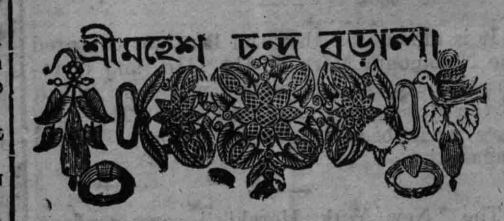 শ্রীমহেশ চন্দ্র বড়াল।